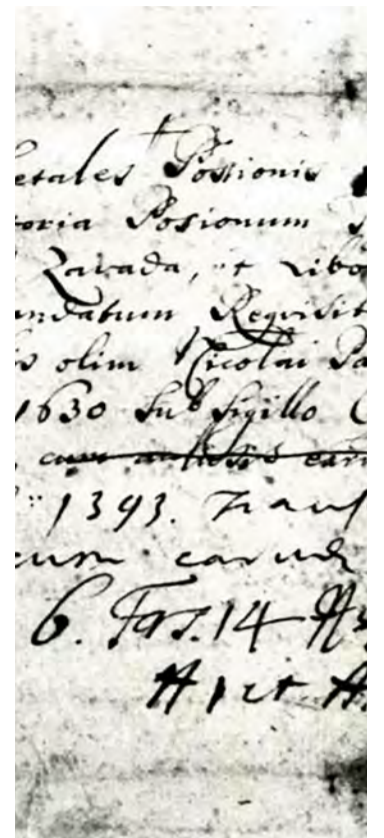 etales Possionis
toria Posionum
Zavada, et Libo
andatum Requisit
s olim Nicolai Pa
1630 Sub Sigillo C
cum
1393. Trans
cum earund
6. Fas. 14 A
A 1 et A